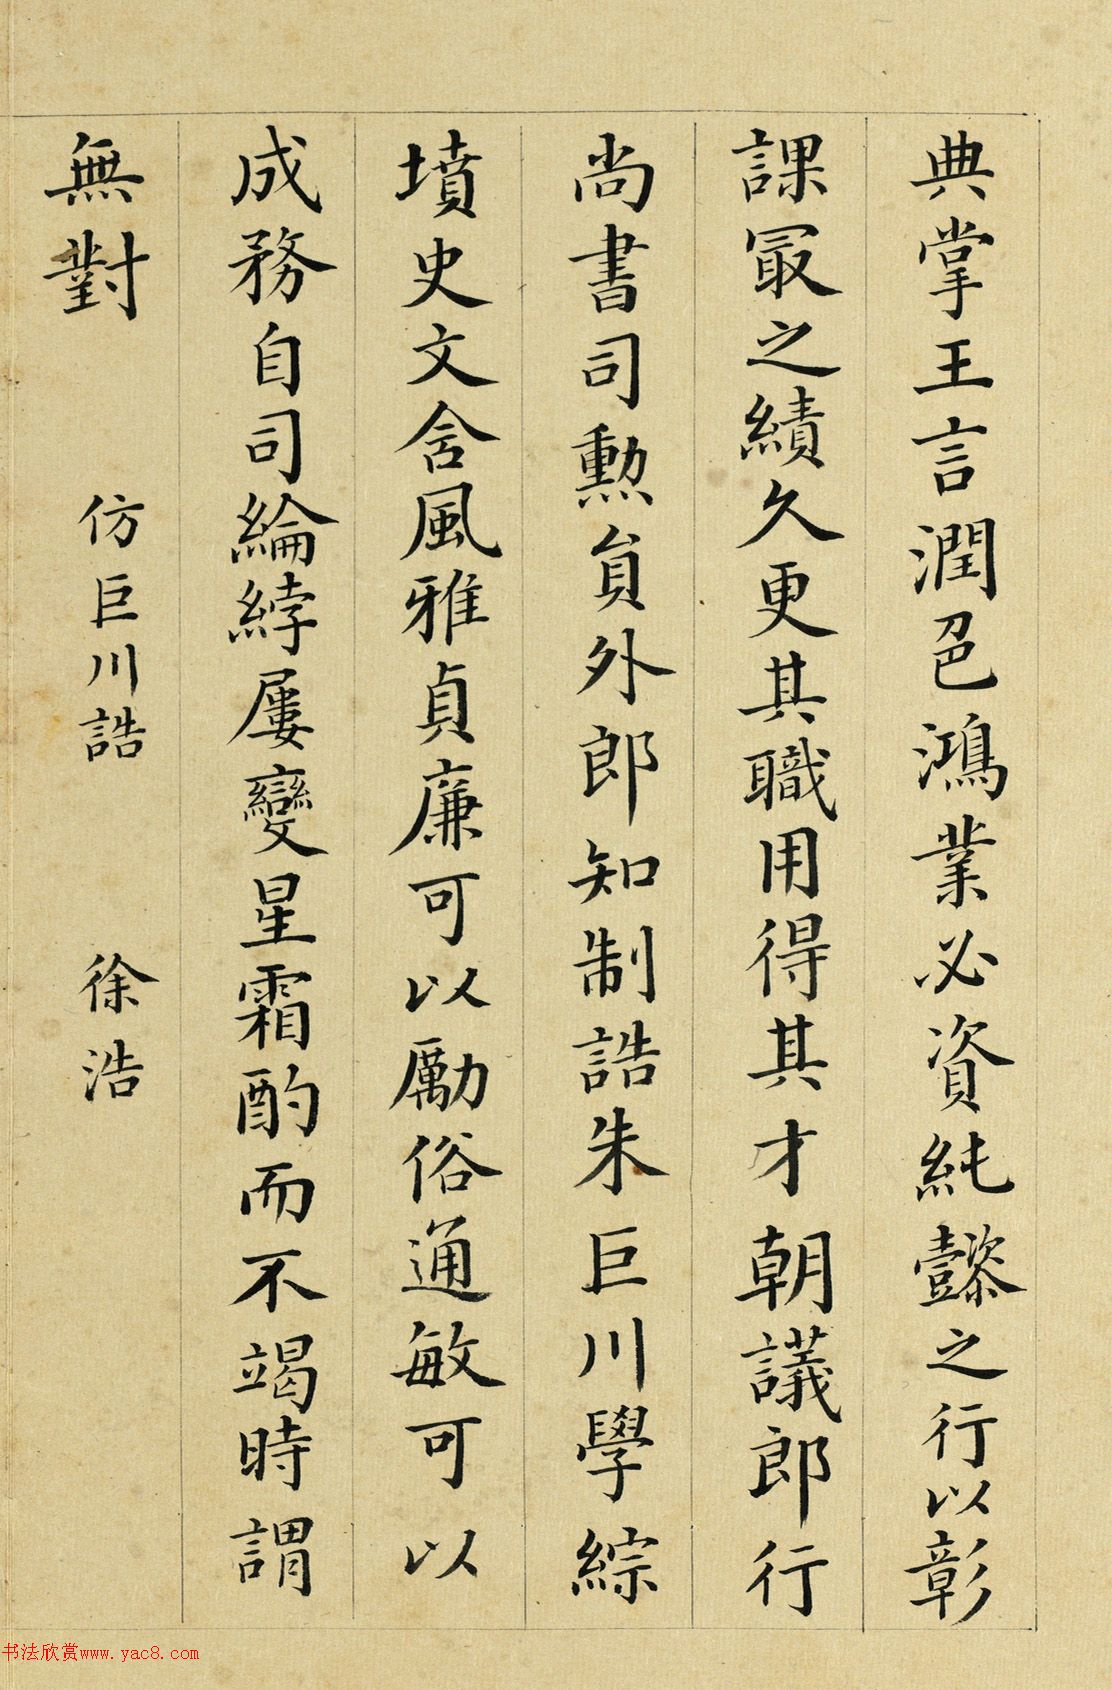 典掌王言潤色鴻業必資純懿之行以彰
課冣之績久更其職用得其才朝議郎行
尚書司勲員外郎知制誥朱巨川學綜
墳史文含風雅貞廉可以勵俗通敏可以
成務自司綸綍屢變星霜酌而不竭時謂
無對 仿巨川誥 徐浩
书法欣赏www.yac8.com